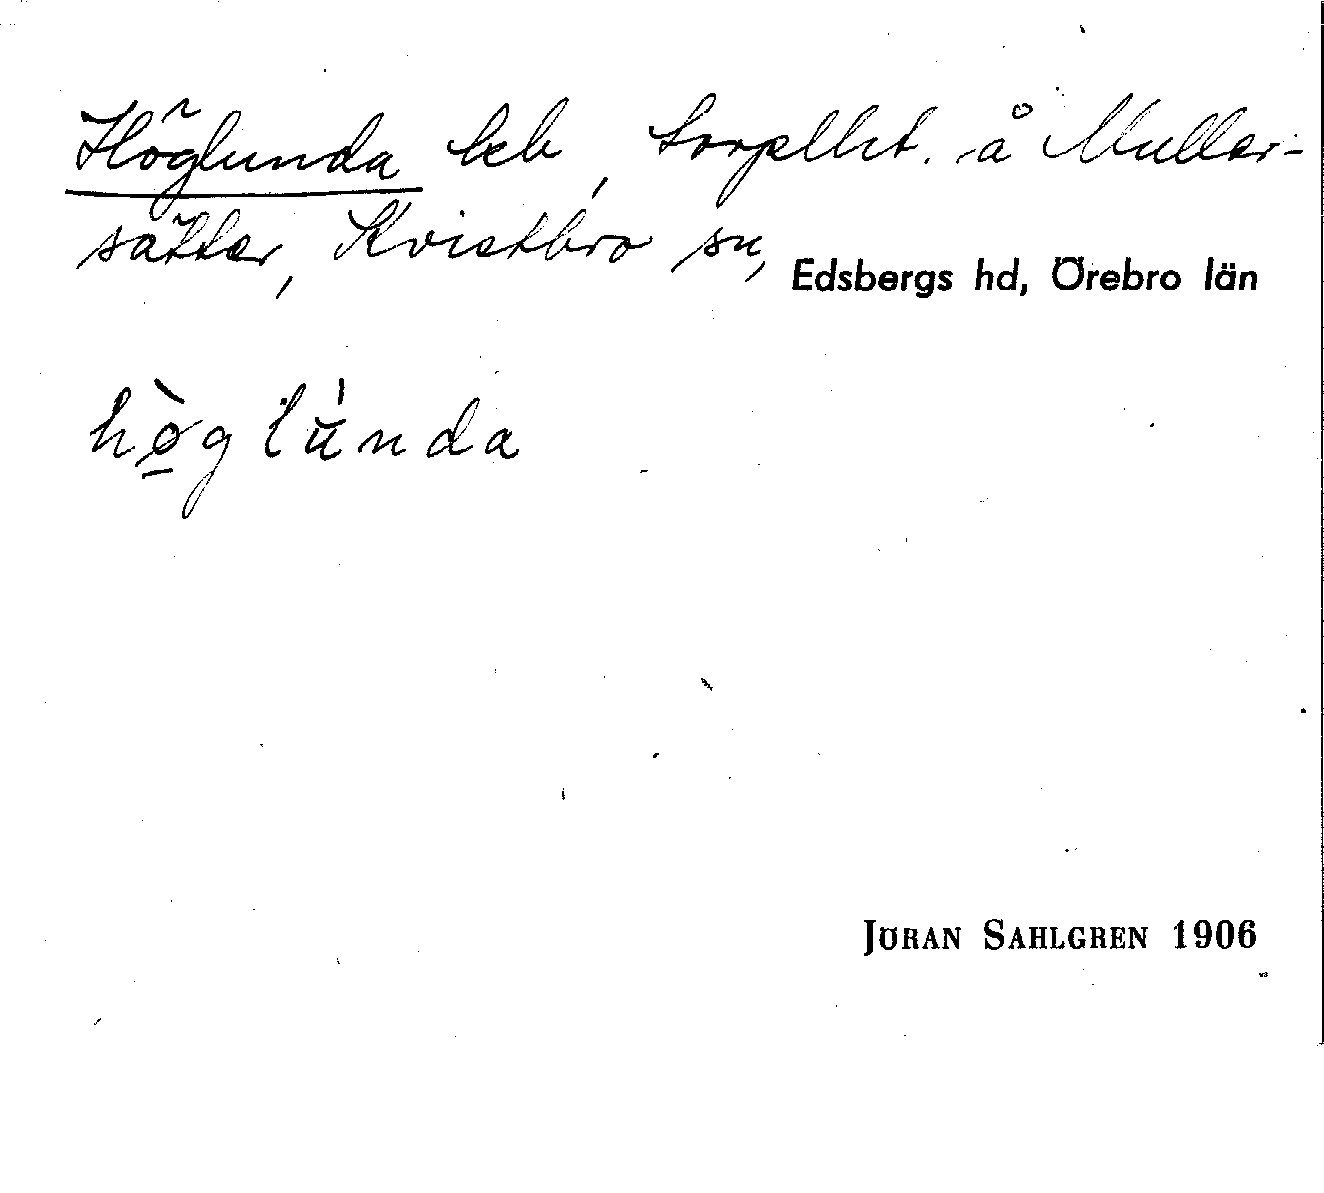 Höglunda leb, torplht. å Muller-
sätter, Kvistbro sn, Edsbergs hd, Örebro län
hø̀glúnda
JÖRAN SAHLGREN 1906